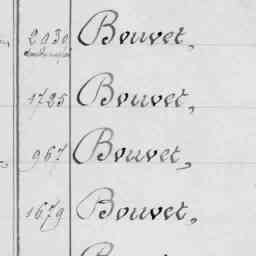 2030 Bouvet,
1725 Bouvet,
967 Bouvet,
1679 Bouvet,